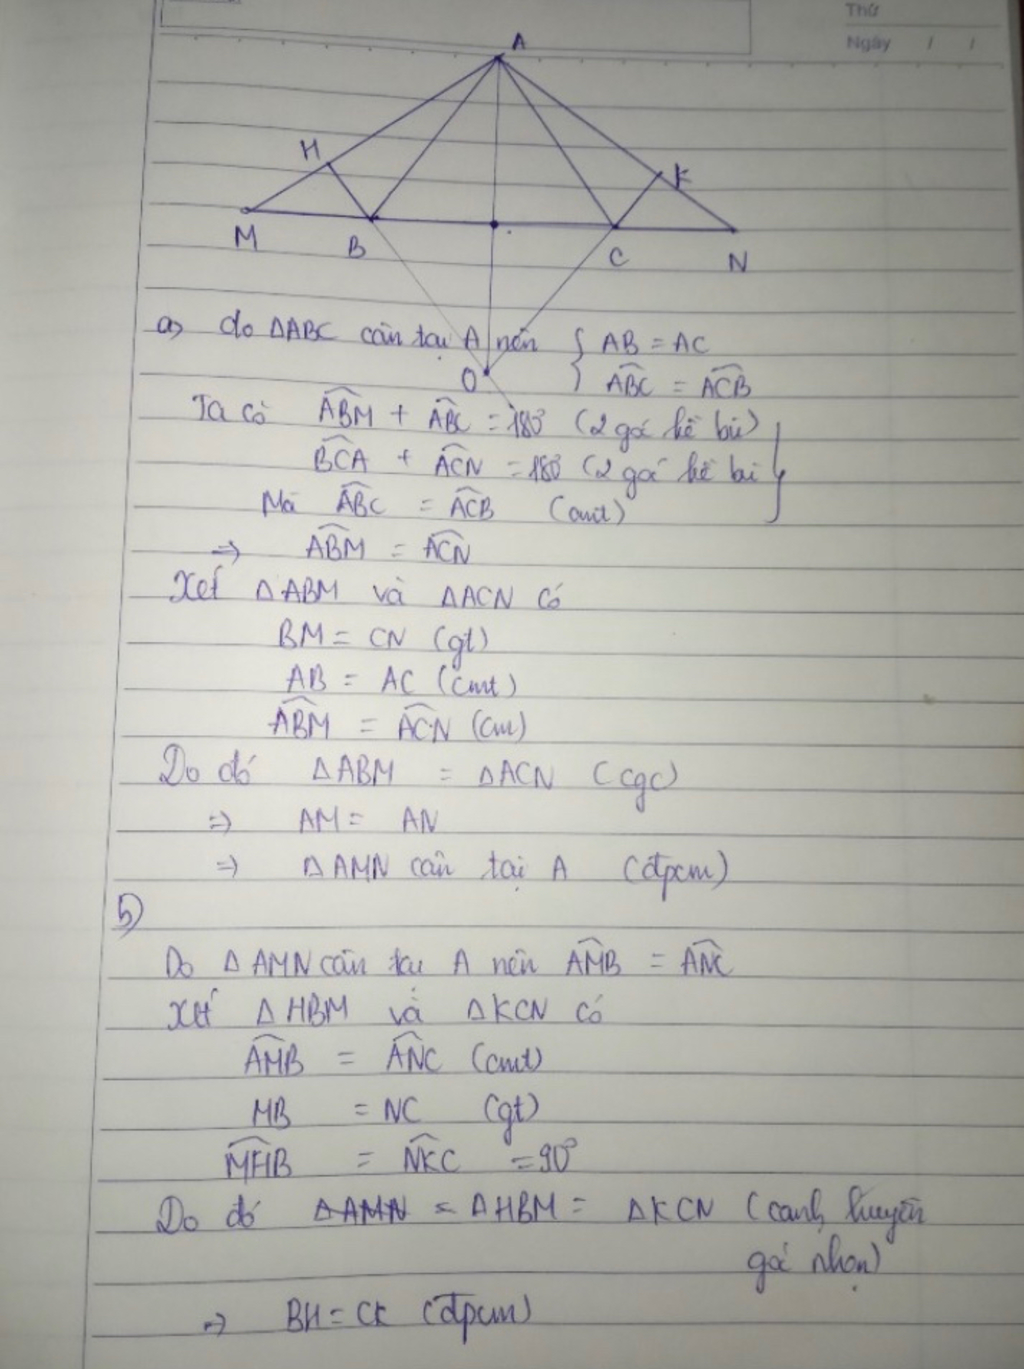 Thứ
Ngày / /
A
H
K
M
B
C
N
a) do ΔABC cân tại A nên { AB = AC
O
ABC = ACB
Ta có ABM + ABC = 180° (2 góc kề bù)
BCA + ACN = 180 (2 góc kề bù
Mà ABC = ACB (cmt)
=> ABM = ACN
Xét ΔABM và ΔACN có
BM = CN (gt)
AB = AC (cmt)
ABM = ACN (cm)
Do đó ΔABM = ΔACN (cgc)
=> AM = AN
=> ΔAMN cân tại A (đpcm)
b)
Do ΔAMN cân tại A nên AMB = ANC
Xét ΔHBM và ΔKCN có
AMB = ANC (cmt)
MB = NC (gt)
MHB = NKC = 90°
Do đó ΔAMN = ΔHBM = ΔKCN (cạnh huyền
góc nhọn)
=> BH = CK (đpcm)